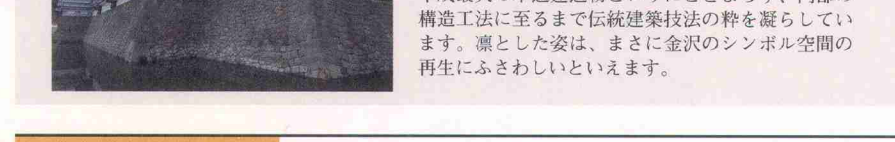 構造工法に至るまで伝統建築技法の粋を凝らしてい
ます。凛とした姿は、まさに金沢のシンボル空間の
再生にふさわしいといえます。